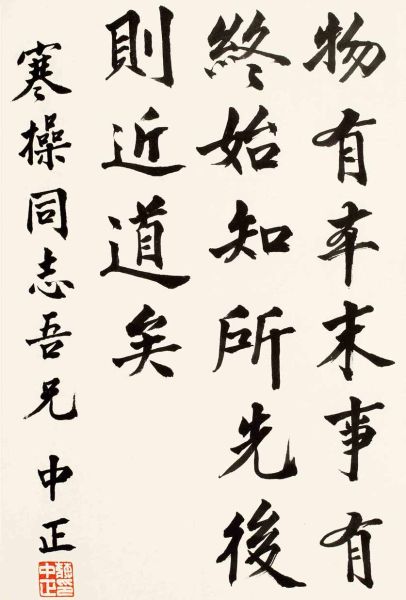 物有本末事有
終始知所先後
則近道矣
寒操同志吾兄 中正
中正